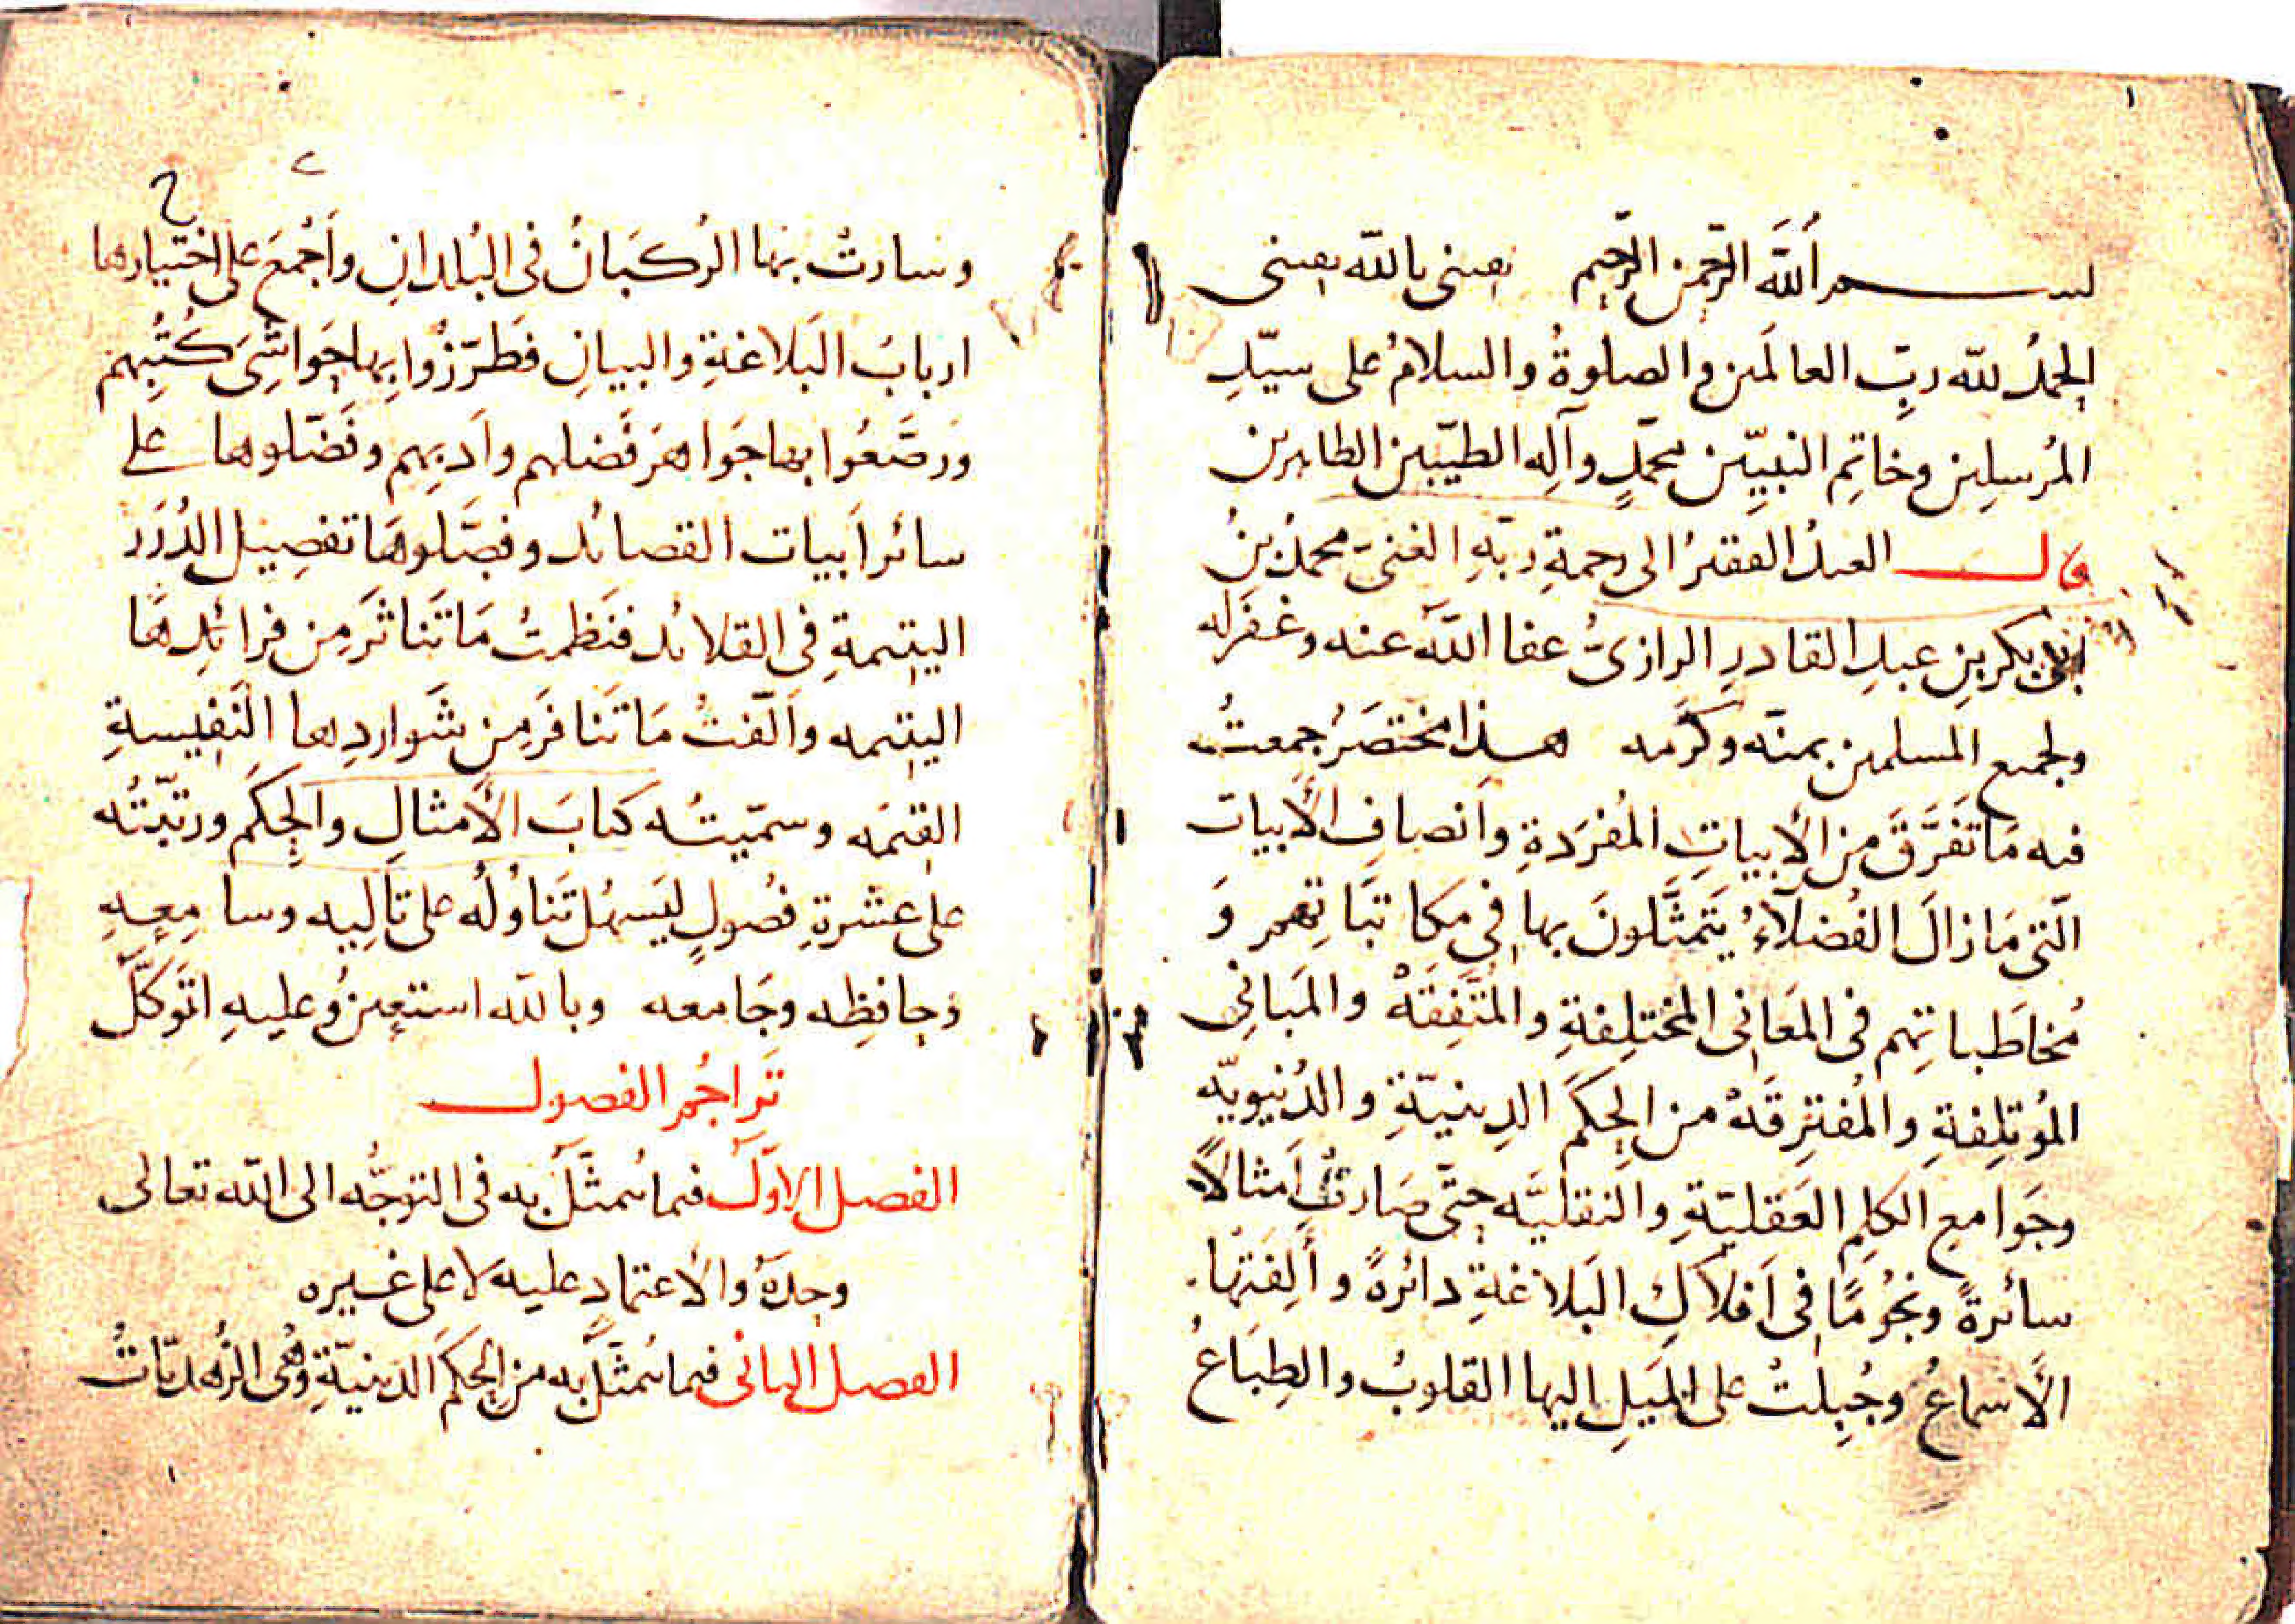 بسم اللَّه الرَّحمن الرَّحيم يقينى بالله يقينى
الحمدُ للّه ربِّ العالَمين والصلوةُ والسلامُ على سيّدِ
المُرسلِين وخاتِمِ النبيِّين محمّدٍ وآلِه الطيّبين الطاهرين
قال العبدُ الفقيرُ الى رحمةِ ربّهِ الغنىّ محمدُ بنُ
ابى بكر بنِ عبدِ القادرِ الرازىُّ عفا اللّه عنه وغفرله
ولجميع المسلمين بمنّه وكرَمه هذا مختصَرٌ جمعتُ
فيه مَا تَفَرَّقَ من الأبياتِ المُفرَدةِ وانصافِ الأبيات
الّتى مَا زالَ الفُضلآءُ يَتَمثَّلونَ بها فِى مَكاتبَاتِهم وَ
مُخاطَباتِهم فى المَعَانِى المختلِفةِ والمُتَّفِقَهْ والمَبانِى
المُؤتلِفةِ والمُفتَرِقَهْ من الحِكَم الدِينيّةِ والدُنيويّه
وجَوامعِ الكلِمِ العَقليّةِ والنقليَّه حتَّى صَارتْ اَمثالاً
سائرةً ونجُومًا فِى اَفلاكِ البَلاغةِ دائرةً وأَلِفَتْها
الأسماعُ وجُبِلتْ على المَيلِ اليها القلوبُ والطِبَاعُ
وسارتْ بها الرُكبَانُ فى البُلدانِ واَجْمَعَ على اختيارها
اربابُ البَلاغةِ والبيانِ فطَرّزُوا بِها حَواشِىَ كُتُبِهم
ورَصَّعُوا بها جَواهرَ فَضلهم واَدبِهم وفَضّلوها على
سائر اَبيات القصائد وفصَّلوهَا تفصِيل الدُرَر
اليتيمةِ فى القلائد فنَظمتُ مَا تَناثَرَ مِن فرائدِها
اليتيمه واَلّفتُ مَا تَنافَرَ مِن شَواردِها النَفِيسةِ
القيمَه وسمّيتُه كتابَ الأمثالِ والحِكَم ورتبّتُه
على عشرةِ فصُولٍ ليَسهُل تَناوُلُه على تالِيه وسامِعِهِ
وحافِظِه وجَامعه وبالله استعِينُ وعليهِ اتَوكّلُ
تَراجُم الفصول
الفصل الاوّل فيما يُتمثَّل به فى التوجُّه الى اللّه تعالى
وحدَهُ والاعتمادِ عليه لا على غيره
الفصل الثانى فيما يُتمثَّل به من الحِكَم الدينيّةِ وهى الزُهديّاتُ